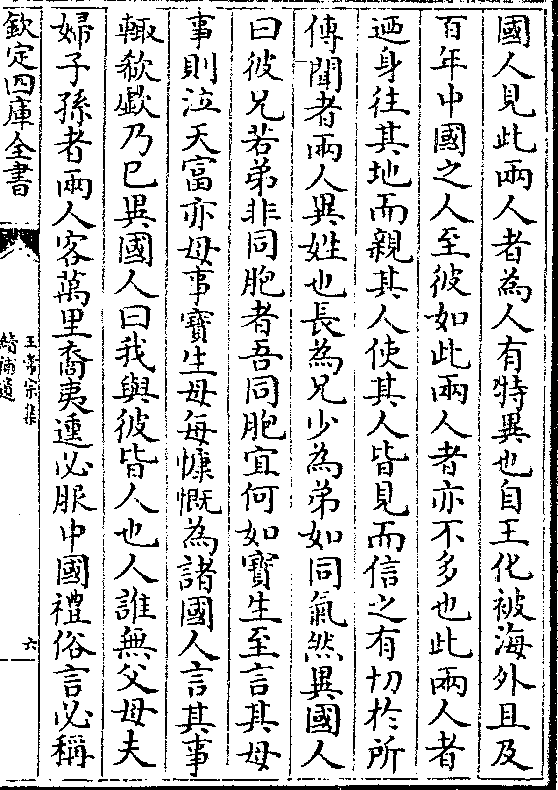 國人見此兩人者為人有特異也自王化被海外且及
百年中國之人至彼如此兩人者亦不多也此兩人者
迺身往其地而親其人使其人皆見而信之有切於所
傳聞者兩人異姓也長為兄少為弟如同氣然異國人
曰彼兄若弟非同胞者吾同胞宜何如寳生至言其母
事則泣天富亦母事寳生母每慷慨為諸國人言其事
輙欷歔乃已異國人曰我與彼皆人也人誰無父母夫
婦子孫者兩人客萬里裔夷連必服中國禮俗言必稱
欽定四庫全書
王常宗集
續補遺
六